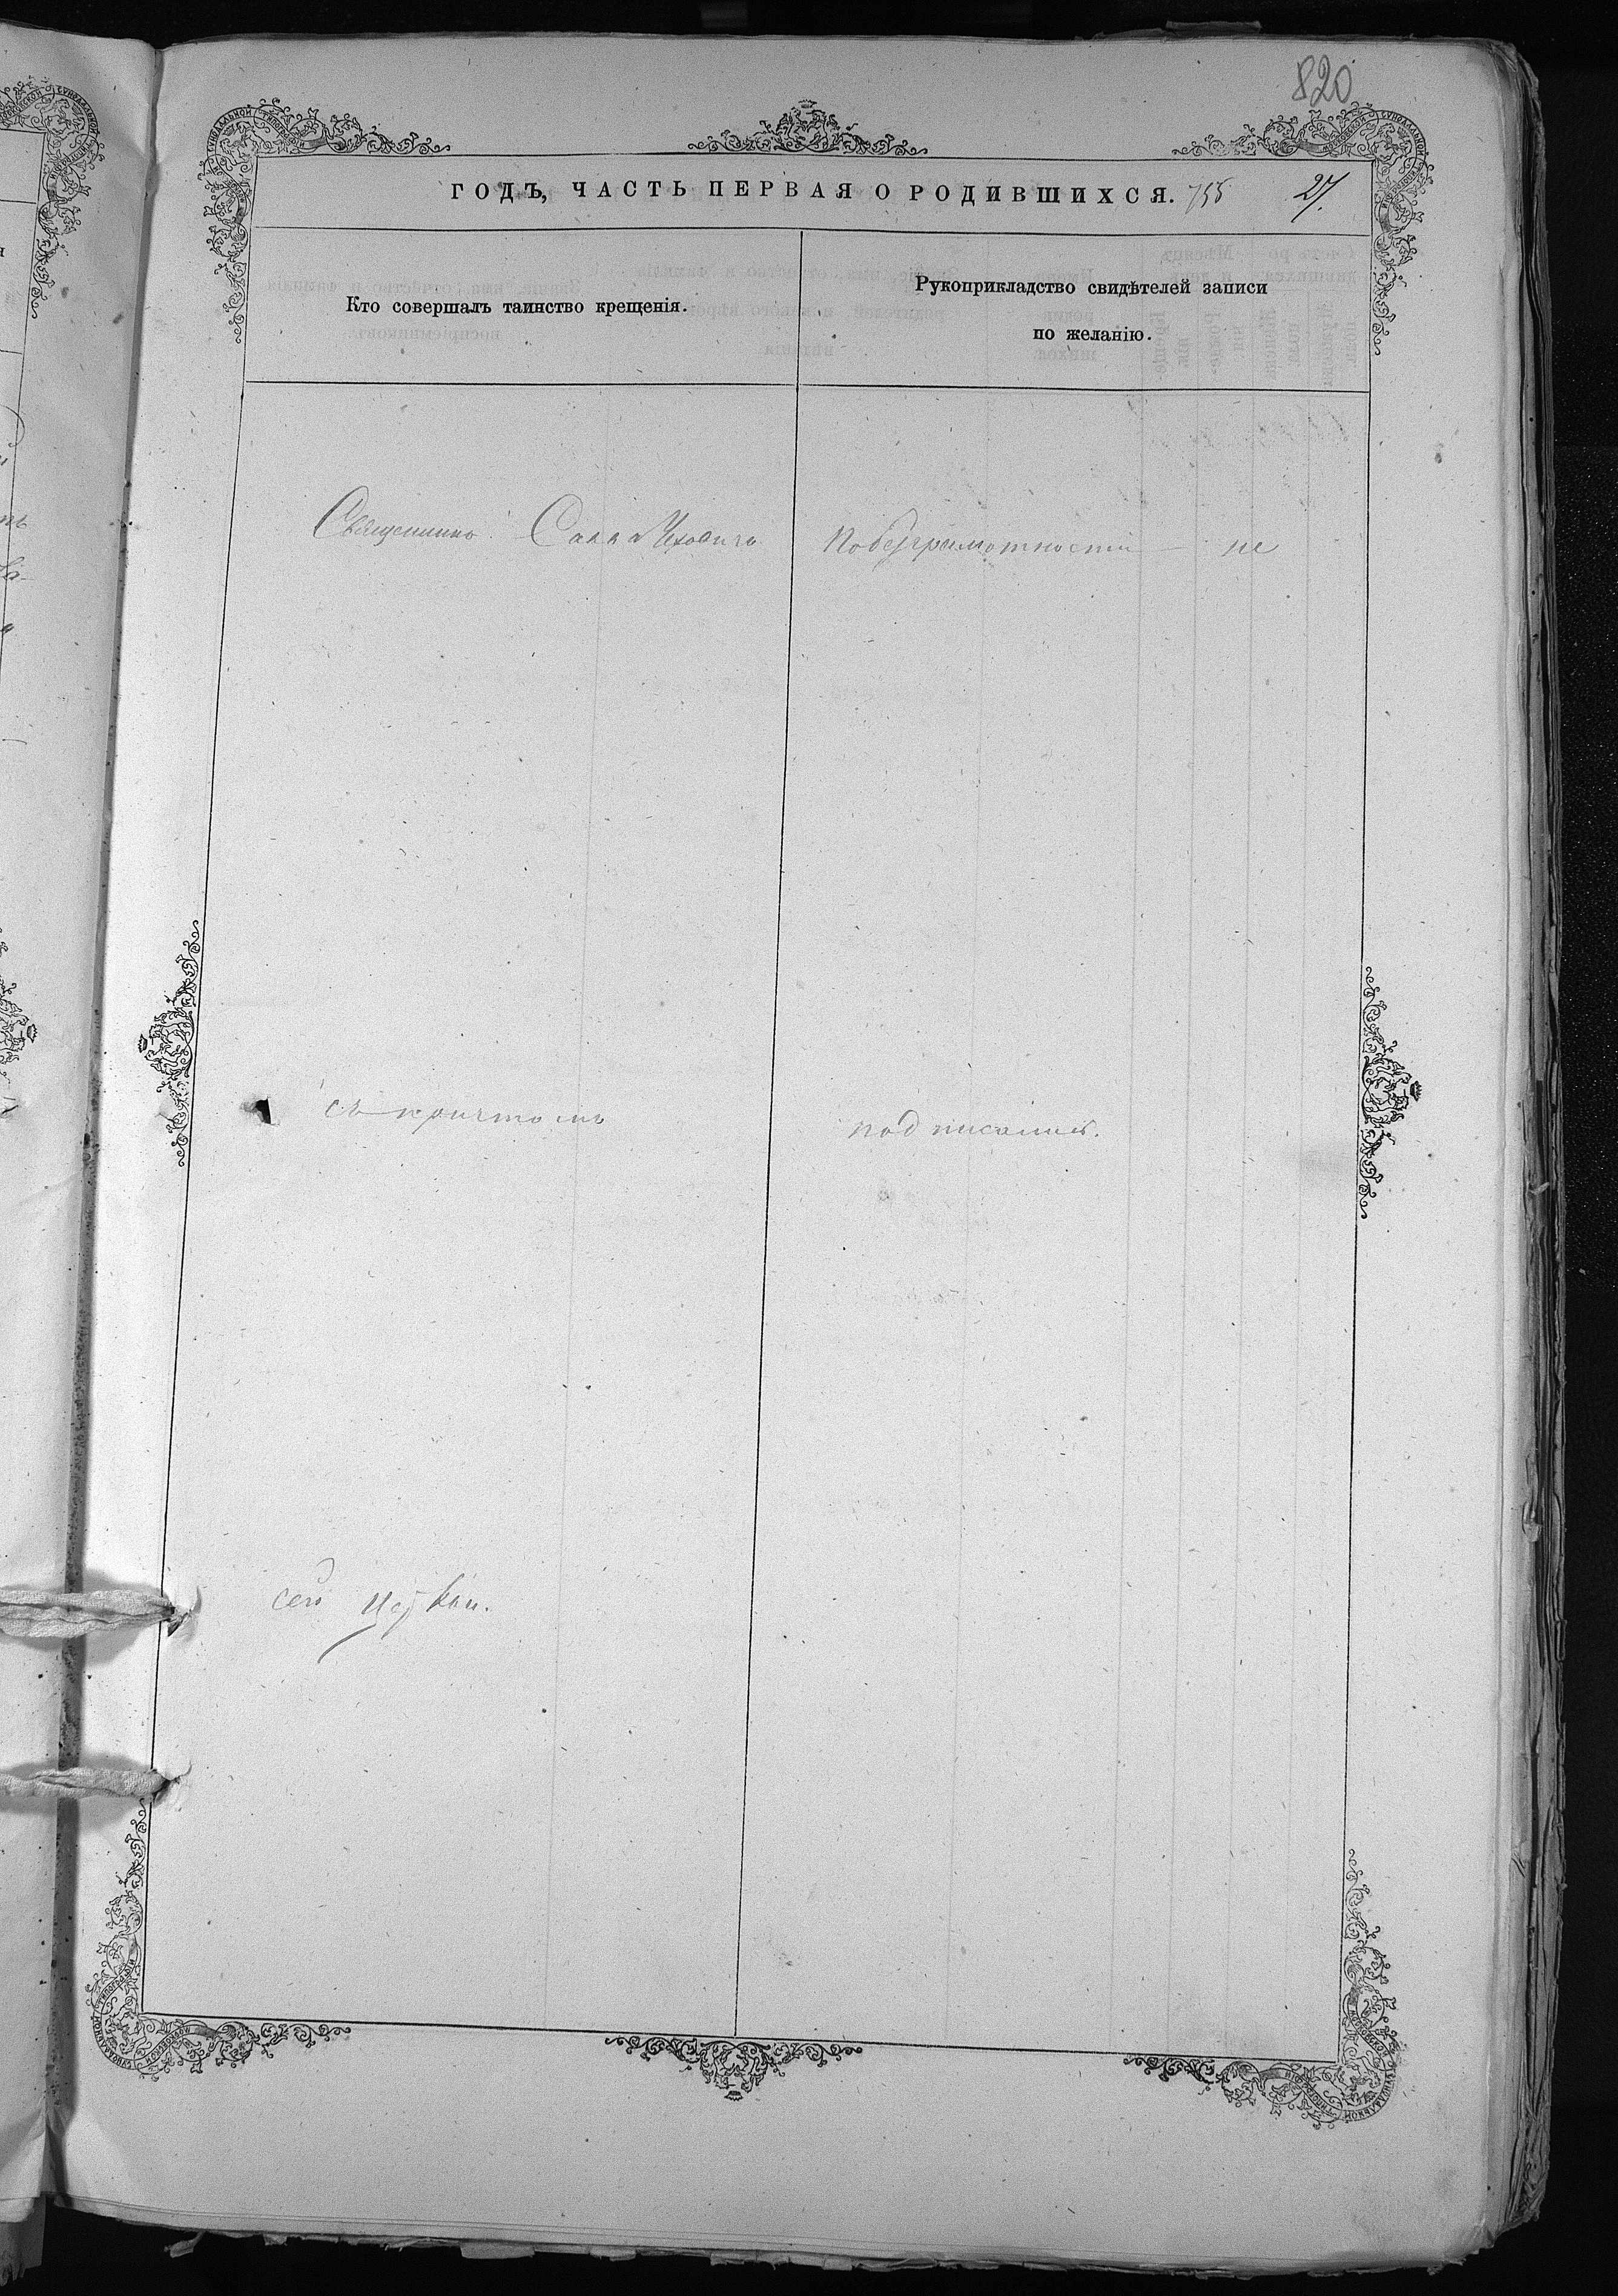 820
ГОДЪ, ЧАСТЬ ПЕРВАЯ О РОДИВШИХСЯ. 27.
Кто совершалъ таинство крещенія.
Рукоприкладство свидѣтелей записи
по желанію.
Священникъ
По безграмотности — не
съ причтомъ
подписались.
сей церкви.